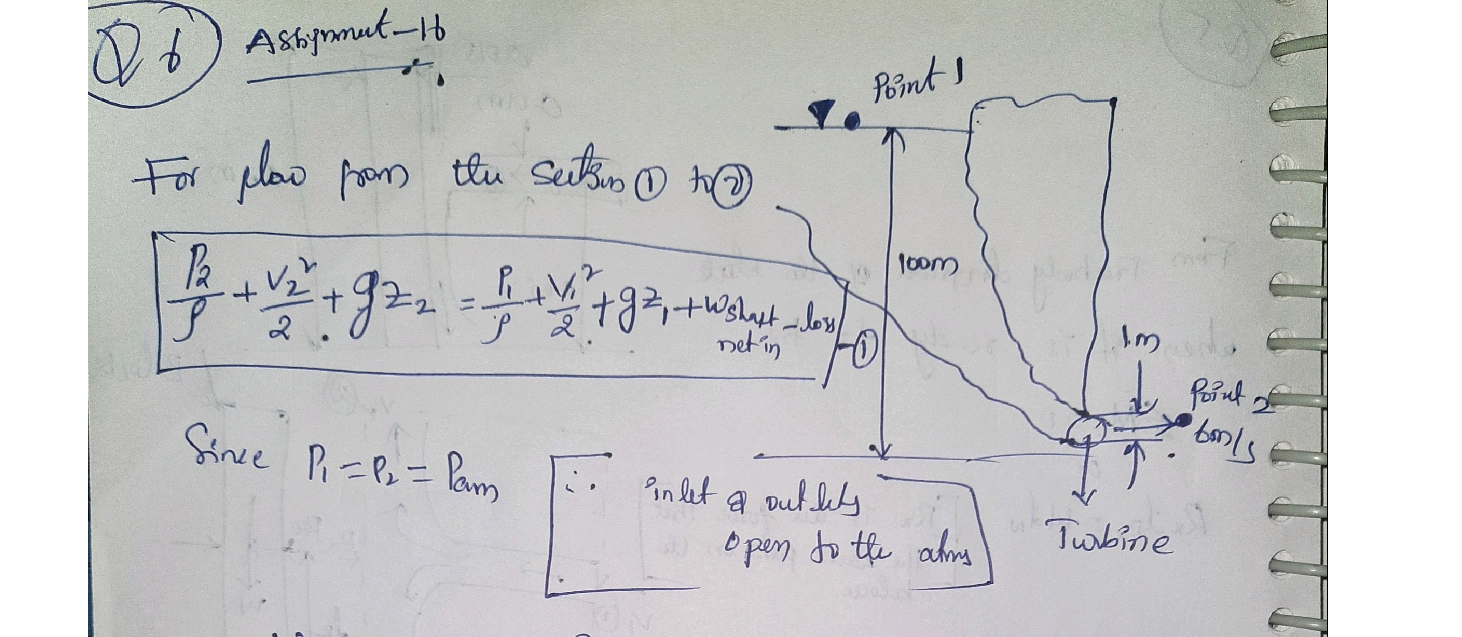 Q6 Assignment-16
Point 1
For flow from the section ① to ②
P2/ρ + V2²/2 + gz2 = P1/ρ + V1²/2 + gz1 + Wshaft net in - loss -①
100m
1m
Point 2
6m/s
Since P1 = P2 = Pam
∴ inlet & outlets
open to the atms
Turbine